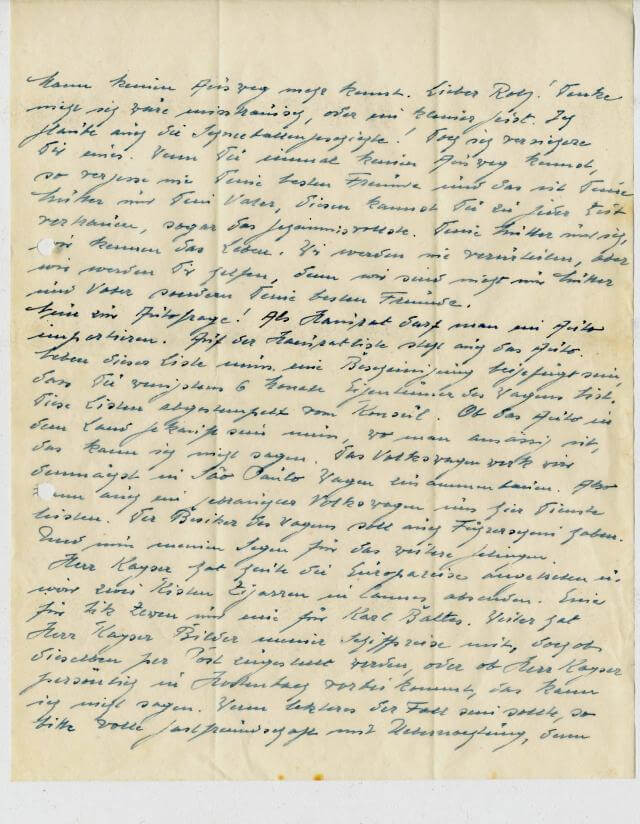 Mann keinen Ausweg mehr kennst. Lieber Rolf! Denke
nicht ich wäre misstrauisch, oder ein kleiner Geist. Ich
glaube auch die! Doch ich versichere
Dir eines. Wenn Du einmal keinen Ausweg kennst,
so vergesse nie Deine besten Freunde und das ist Deine
Mutter und Dein Vater, diesen kannst Du zu jeder Zeit
vertrauen, sogar das geheimnisvollste. Deine Mutter und ich,
wir kennen das Leben. Wir werden nie verurteilen, aber
wir werden Dir helfen, denn wir sind nicht nur Mutter
und Vater sondern Deine besten Freunde.
Nun zur Autofrage! Als Heiratsgut darf man ein Auto
importieren. Auf der Liste steht auch das Auto.
Neben dieser Liste muss eine Bescheinigung beigefügt sein,
dass Du wenigstens 6 Monate Eigentümer des Wagens bist.
Diese Listen abgestempelt vom Konsul. Ob das Auto in
dem Land gekauft sein muss, wo man ansässig ist,
das kann ich nicht sagen. Das Volkswagenwerk wird
demnächst in São Paulo Wagen zusammenbauen. Also
kann auch ein Volkswagen uns hier Dienste
leisten. Der Besitzer des Wagens soll auch Führerschein haben.
Und nun meinen Segen für das weitere Gelingen.
Herr Kayser hat heute die Europareise angetreten u.
wird zwei Kisten Zigarren in absenden. Eine
für und eine für Karl Baltes. Weiter hat
Herr Kayser Bilder meiner Schiffsreise mit, doch ob
dieselben per Post zugestellt werden, oder ob Herr Kayser
persönlich in vorbei kommt, das kann
ich nicht sagen. Wenn letzteres der Fall sein sollte, so
bitte volle Gastfreundschaft mit Uebernachtung, denn